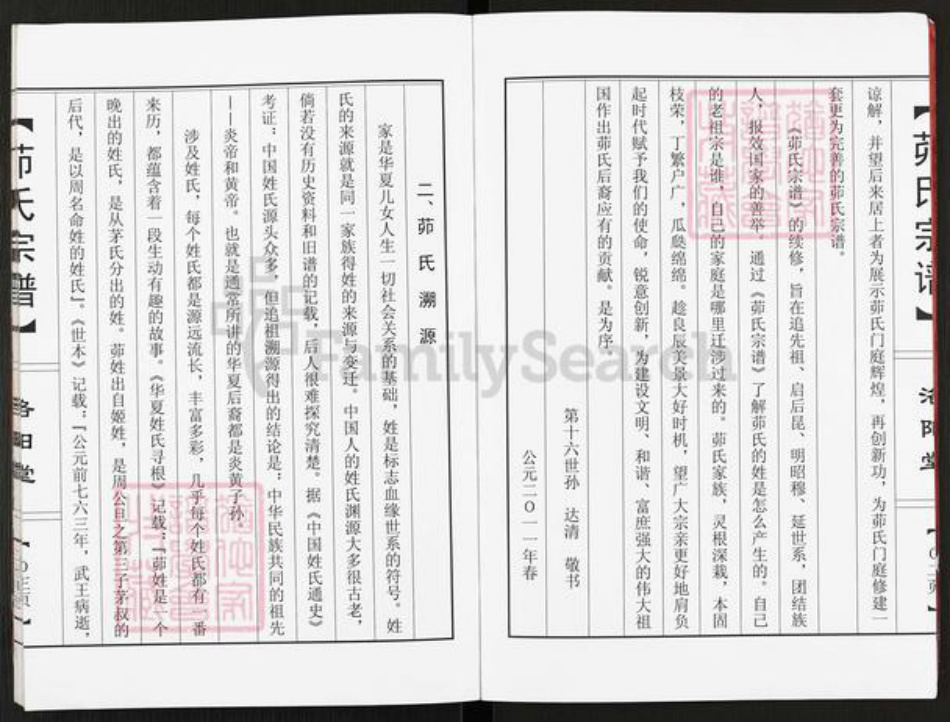 【茆氏宗谱】
洛阳堂
谅解，并望后来居上者为展示茆氏门庭辉煌，再创新功，为茆氏门庭修建一
套更为完善的茆氏宗谱。
《茆氏宗谱》的续修，旨在追先祖、启后昆、明昭穆、延世系，团结族
人，报效国家的善举。通过《茆氏宗谱》了解茆氏的姓是怎么产生的。自己
的老祖宗是谁，自己的家庭是哪里迁涉过来的。茆氏家族，灵根深栽，本固
枝荣，丁繁户广，瓜瓞绵绵。趁良辰美景大好时机，望广大宗亲更好地肩负
起时代赋予我们的使命，锐意创新，为建设文明、和谐、富庶强大的伟大祖
国作出茆氏后裔应有的贡献。是为序。
第十六世孙 达清 敬书
公元二〇一一年春
二、茆氏溯源
家是华夏儿女人生一切社会关系的基础，姓是标志血缘世系的符号。姓
氏的来源就是同一家族得姓的来源与变迁。中国人的姓氏渊源大多很古老，
倘若没有历史资料和旧谱的记载，后人很难探究清楚。据《中国姓氏通史》
考证：中国姓氏源头众多，但追祖溯源得出的结论是：中华民族共同的祖先
——炎帝和黄帝。也就是通常所讲的华夏后裔都是炎黄子孙。
涉及姓氏，每个姓氏都是源远流长，丰富多彩，几乎每个姓氏都有一番
来历，都蕴含着一段生动有趣的故事。《华夏姓氏寻根》记载：『茆姓是一个
晚出的姓氏，是从茅氏分出的姓。茆姓出自姬姓，是周公旦之第三子茅叔的
后代，是以周名命姓的姓氏』。《世本》记载：『公元前七六三年，武王病逝，
【茆氏宗谱】
洛阳堂
FamilySearch